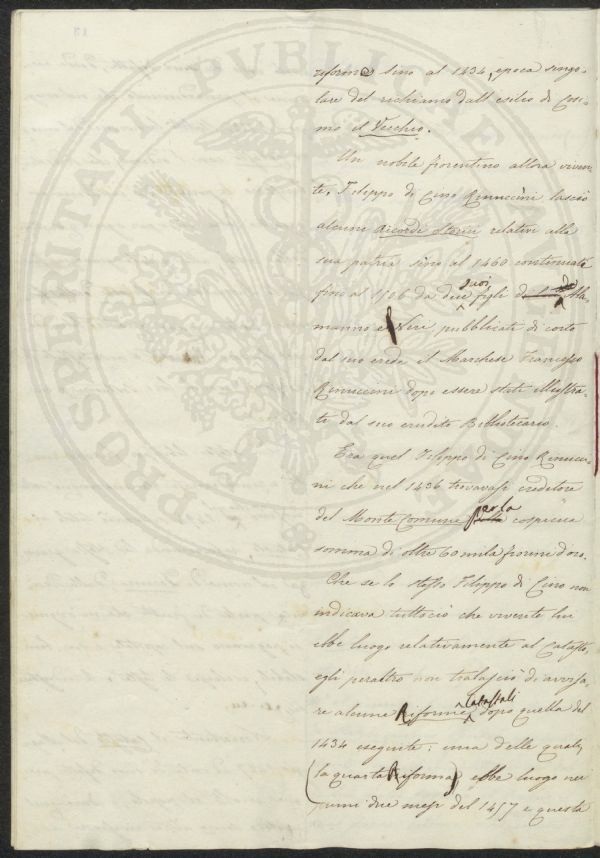 PROSPERITATI PVBLICAE
riforme sino al 1434, epoca singo-
lare del richiamo dall'esilio di Cosi-
mo il Vecchio.
Un nobile fiorentino allora viven-
te, Filippo di Cino Rinuccini lasciò
alcuni Ricordi Storici relativi alla
sua patria sino al 1460 continuati
suoi
fino al 1506 da due figli Ala-
manno e Neri pubblicati di corto
dal suo erede il Marchese Francesco
Rinuccini dopo essere stati illustra-
ti dal suo erudito Bibliotecario.
Era quel Filippo di Cino Rinucci-
ni che nel 1436 trovavasi creditore
per la
del Monte Comune cospicua
somma di oltre 60 mila fiorini d'oro.
Che se lo stesso Filippo di Cino non
indicava tuttociò che vivente lui
ebbe luogo relativamente al Catasto,
egli peraltro non tralasciò di avvisa-
Catastali
re alcune Riforme dopo quella del
1434 eseguite: una delle quali,
(la quarta Riforma) ebbe luogo nei
primi due mesi del 1457 e questa